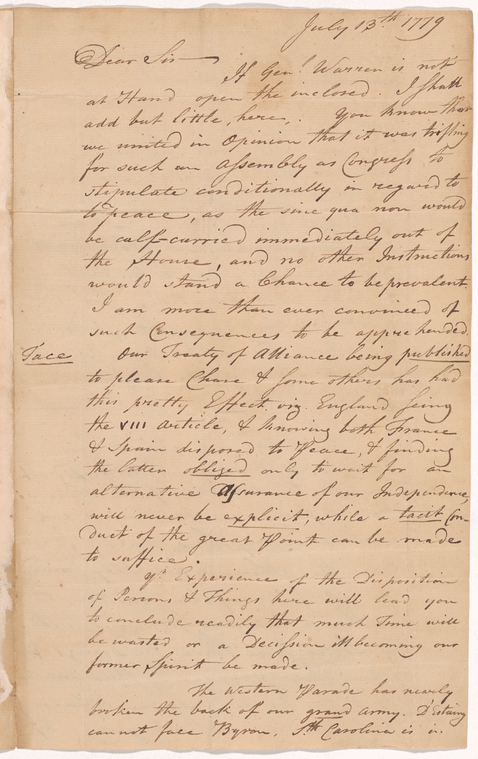 July 13th 1779
Dear Sir
If Genl. Warren is not
at Hand open the inclosed. I shall
add but little, here,. You know that
we united in Opinion that it was trifling
for such an Assembly as Congress to
stipulate conditionally in regard to
to peace, as the sine qua non would
be calf-carried immediately out of
the House, and no other Instructions
would stand a Chance to be prevalent
I am more than ever convinced of
such Consequences to be apprehended.
Tace
Our Treaty of Alliance being published
to please Chase & some others has had
this pretty Effect viz. England seing
the VIII Article, & knowing both France
& Spain disposed to Peace, & finding
the latter obliged only to wait for an
alternative Assurance of our Independence,
will never be explicit, while a tacit Con-
duct of the great Point can be made
to suffice.
Yr. Experience of the Disposition
of Persons & Things here will lead you
to conclude readily that much Time will
be wasted or a Decission ill becoming our
former Spirit be made.
The Western Parade has newly
broken the back of our grand Army. D'Estaing
cannot face Byron. Sth. Carolina is in